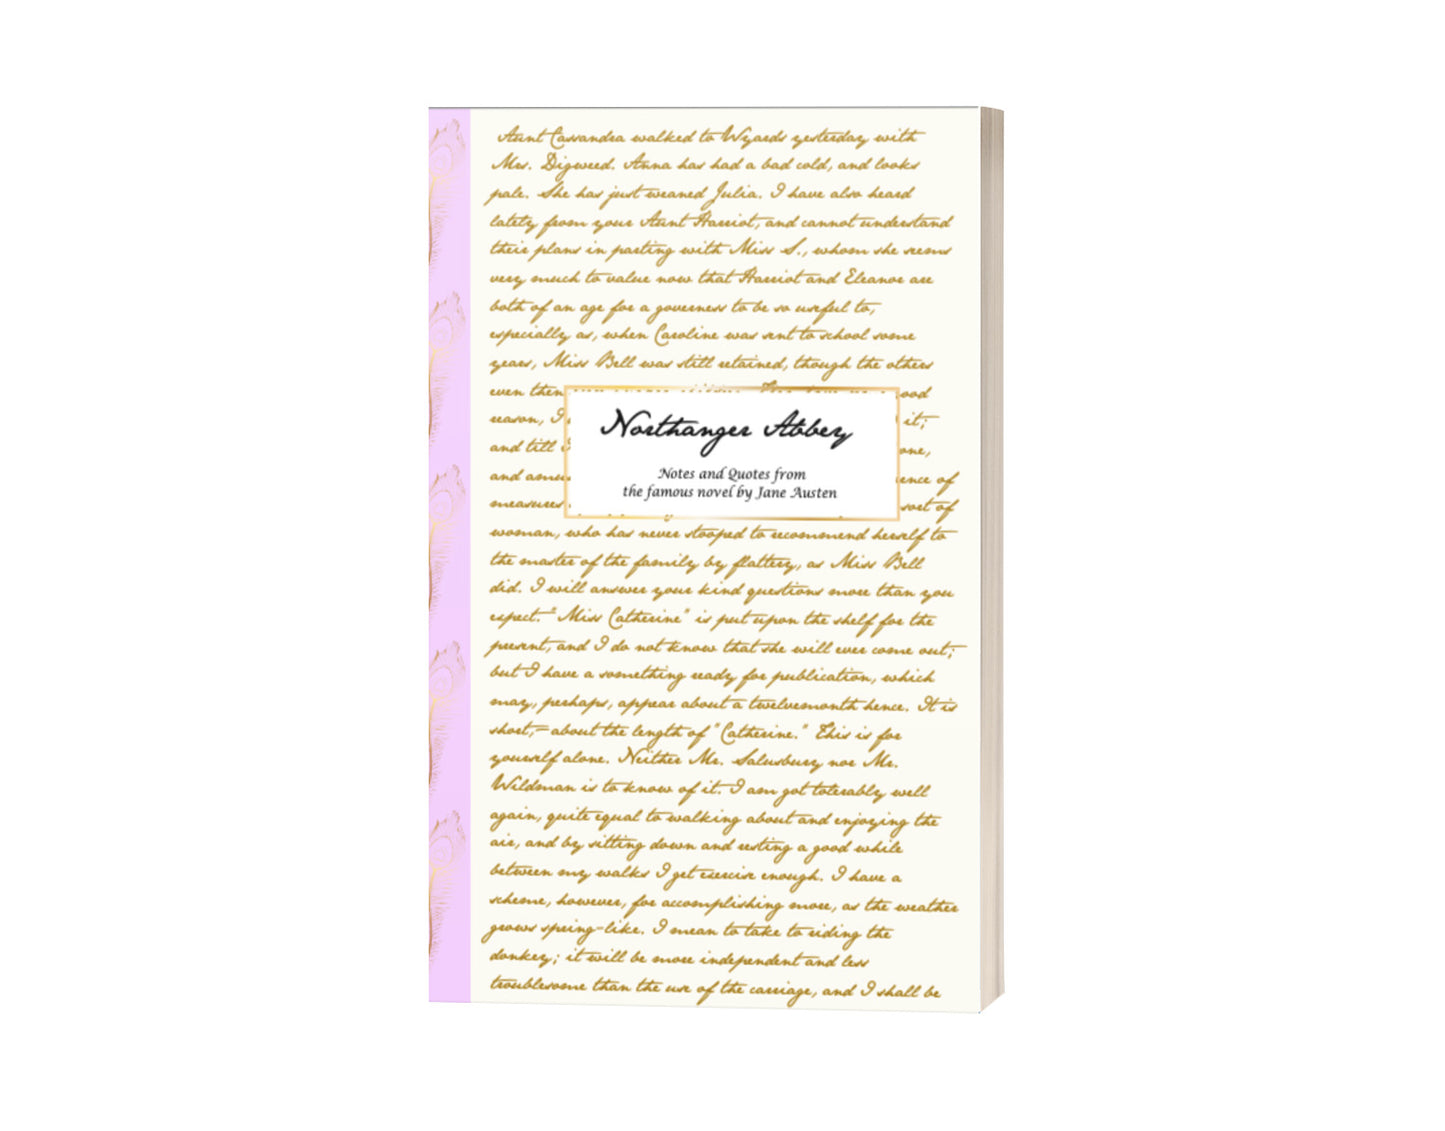 Aunt Cassandra walked to Wyards yesterday with
Mrs. Digweed. Anna has had a bad cold, and looks
pale. She has just weaned Julia. I have also heard
lately from your Aunt Harriot, and cannot understand
their plans in parting with Miss S., whom she seems
very much to value now that Harriot and Eleanor are
both of an age for a governess to be so useful to,
especially as, when Caroline was sent to school some
years, Miss Bell was still retained, though the others
even then
reason, I it;
and till one,
and amus ence of
measures sort of
Northanger Abbey
Notes and Quotes from
the famous novel by Jane Austen
woman, who has never stooped to recommend herself to
the master of the family by flattery, as Miss Bell
did. I will answer your kind questions more than you
expect.-"Miss Catherine" is put upon the shelf for the
present, and I do not know that she will ever come out;
but I have a something ready for publication, which
may, perhaps, appear about a twelvemonth hence. It is
short,-about the length of "Catherine." This is for
yourself alone. Neither Mr. Salusbury nor Mr.
Wildman is to know of it. I am got tolerably well
again, quite equal to walking about and enjoying the
air, and by sitting down and resting a good while
between my walks I get exercise enough. I have a
scheme, however, for accomplishing more, as the weather
grows spring-like. I mean to take to riding the
donkey; it will be more independent and less
troublesome than the use of the carriage, and I shall be